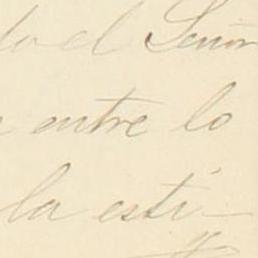 el Señor
entre lo
la esti-